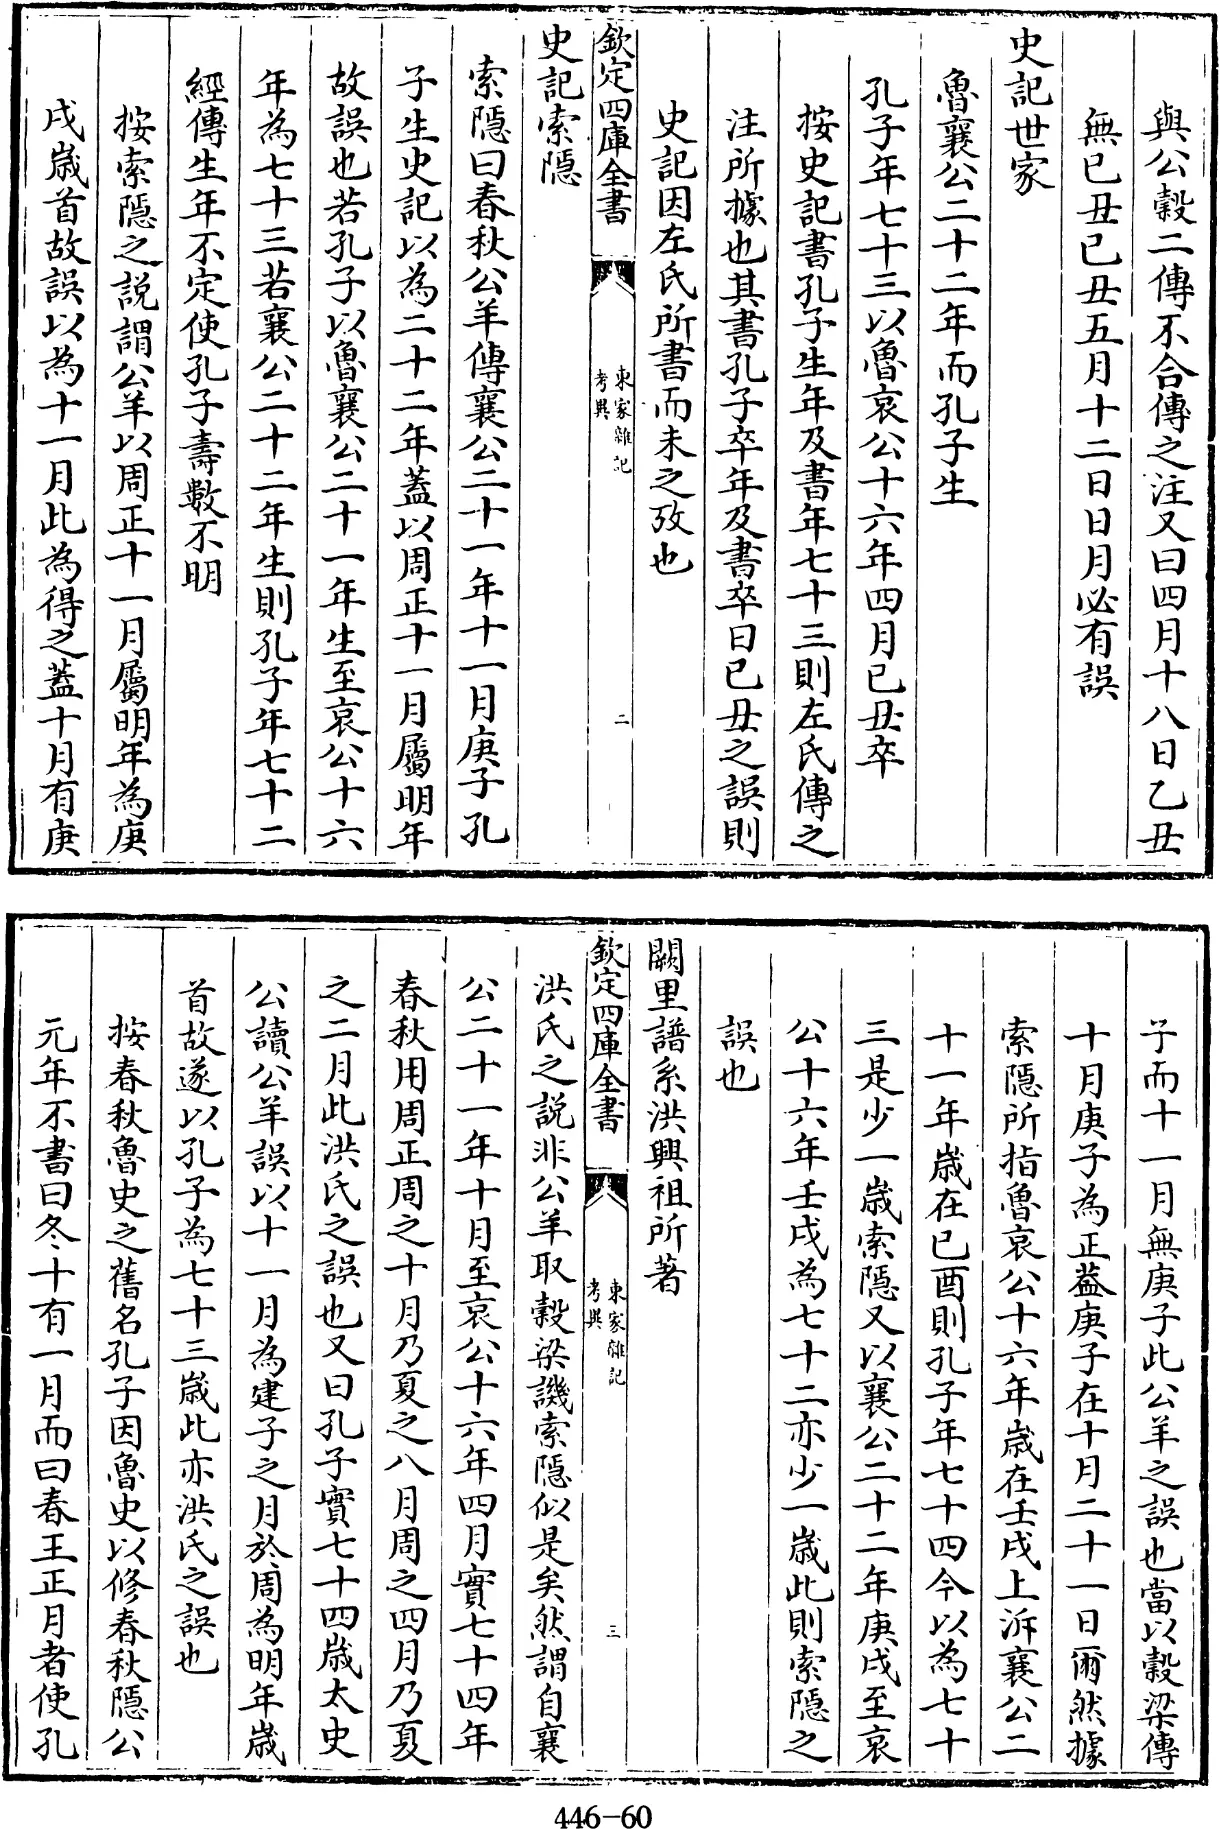 與公穀二傳不合傳之注又曰四月十八日乙丑
無已丑已丑五月十二日日月必有誤
史記世家
魯襄公二十二年而孔子生
孔子年七十三以魯哀公十六年四月已丑卒
按史記書孔子生年及書年七十三則左氏傳之
注所據也其書孔子卒年及書卒日已丑之誤則
史記因左氏所書而未之攷也
欽定四庫全書
東家雜記
考異
二
史記索隱
索隱曰春秋公羊傳襄公二十一年十一月庚子孔
子生史記以為二十二年蓋以周正十一月屬明年
故誤也若孔子以魯襄公二十一年生至哀公十六
年為七十三若襄公二十二年生則孔子年七十二
經傳生年不定使孔子壽數不明
按索隱之說謂公羊以周正十一月屬明年為庚
戌歲首故誤以為十一月此為得之蓋十月有庚
子而十一月無庚子此公羊之誤也當以穀梁傳
十月庚子為正葢庚子在十月二十一日爾然據
索隱所指魯哀公十六年歲在壬戌上泝襄公二
十一年歲在已酉則孔子年七十四今以為七十
三是少一歲索隱又以襄公二十二年庚戌至哀
公十六年壬戌為七十二亦少一歲此則索隱之
誤也
闕里譜系洪興祖所著
欽定四庫全書
東家雜記
考異
三
洪氏之說非公羊取穀梁譏索隱似是矣然謂自襄
公二十一年十月至哀公十六年四月實七十四年
春秋用周正周之十月乃夏之八月周之四月乃夏
之二月此洪氏之誤也又曰孔子實七十四歲太史
公讀公羊誤以十一月為建子之月於周為明年歲
首故遂以孔子為七十三歲此亦洪氏之誤也
按春秋魯史之舊名孔子因魯史以修春秋隱公
元年不書曰冬十有一月而曰春王正月者使孔
446-60